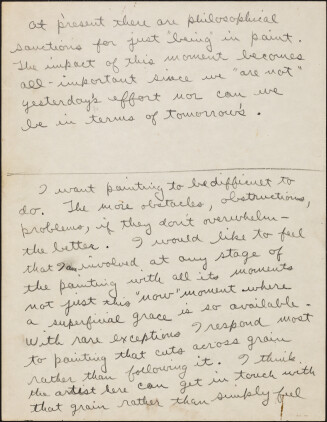 at present there are philosophical
sanctions for just 'being' in paint.
The impact of this moment becomes
all-important since we "are not"
yesterday's effort nor can we
be in terms of tomorrow's.
I want painting to be difficult to
do. The more obstacles, obstructions,
problems, if they don't overwhelm -
the better. I would like to feel
that I am involved at any stage of
the painting with all its moments
not just this "now" moment where
a superficial grace is so available.
With rare exceptions I respond most
to painting that cuts across grain
rather than following it. I think
the artist here can get in touch with
that grain rather than simply feel